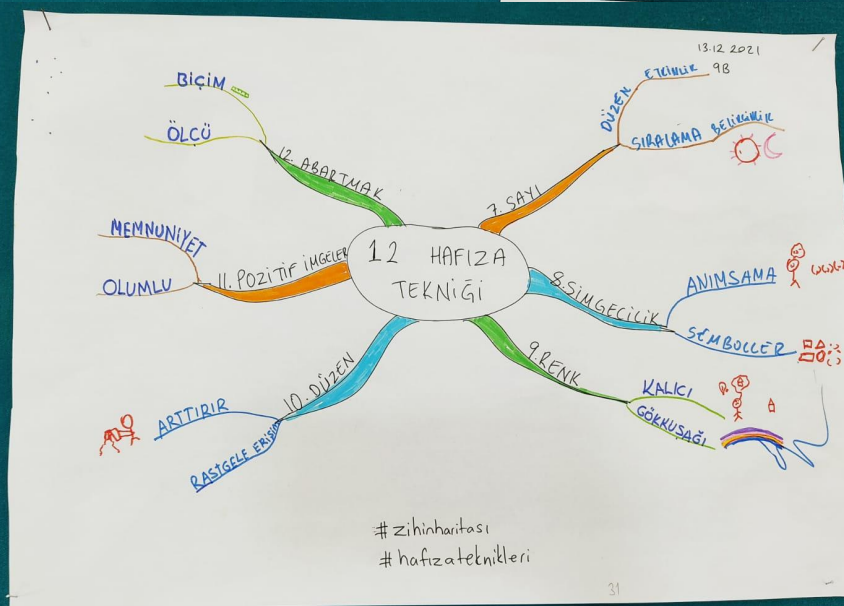 13.12 2021
9B
12 HAFIZA
TEKNİĞİ
7. SAYI
DÜZEN
ETKİNLİK
SIRALAMA BELİRGİNLİK
8. SİMGECİLİK
ANIMSAMA
SEMBOLLER
9. RENK
KALICI
GÖKKUŞAĞI
10. DÜZEN
ARTTIRIR
RASTGELE ERİŞİM
11. POZİTİF İMGELER
MEMNUNİYET
OLUMLU
12. ABARTMAK
BİÇİM
ÖLÇÜ
#zihinharitası
#hafızateknikleri
31